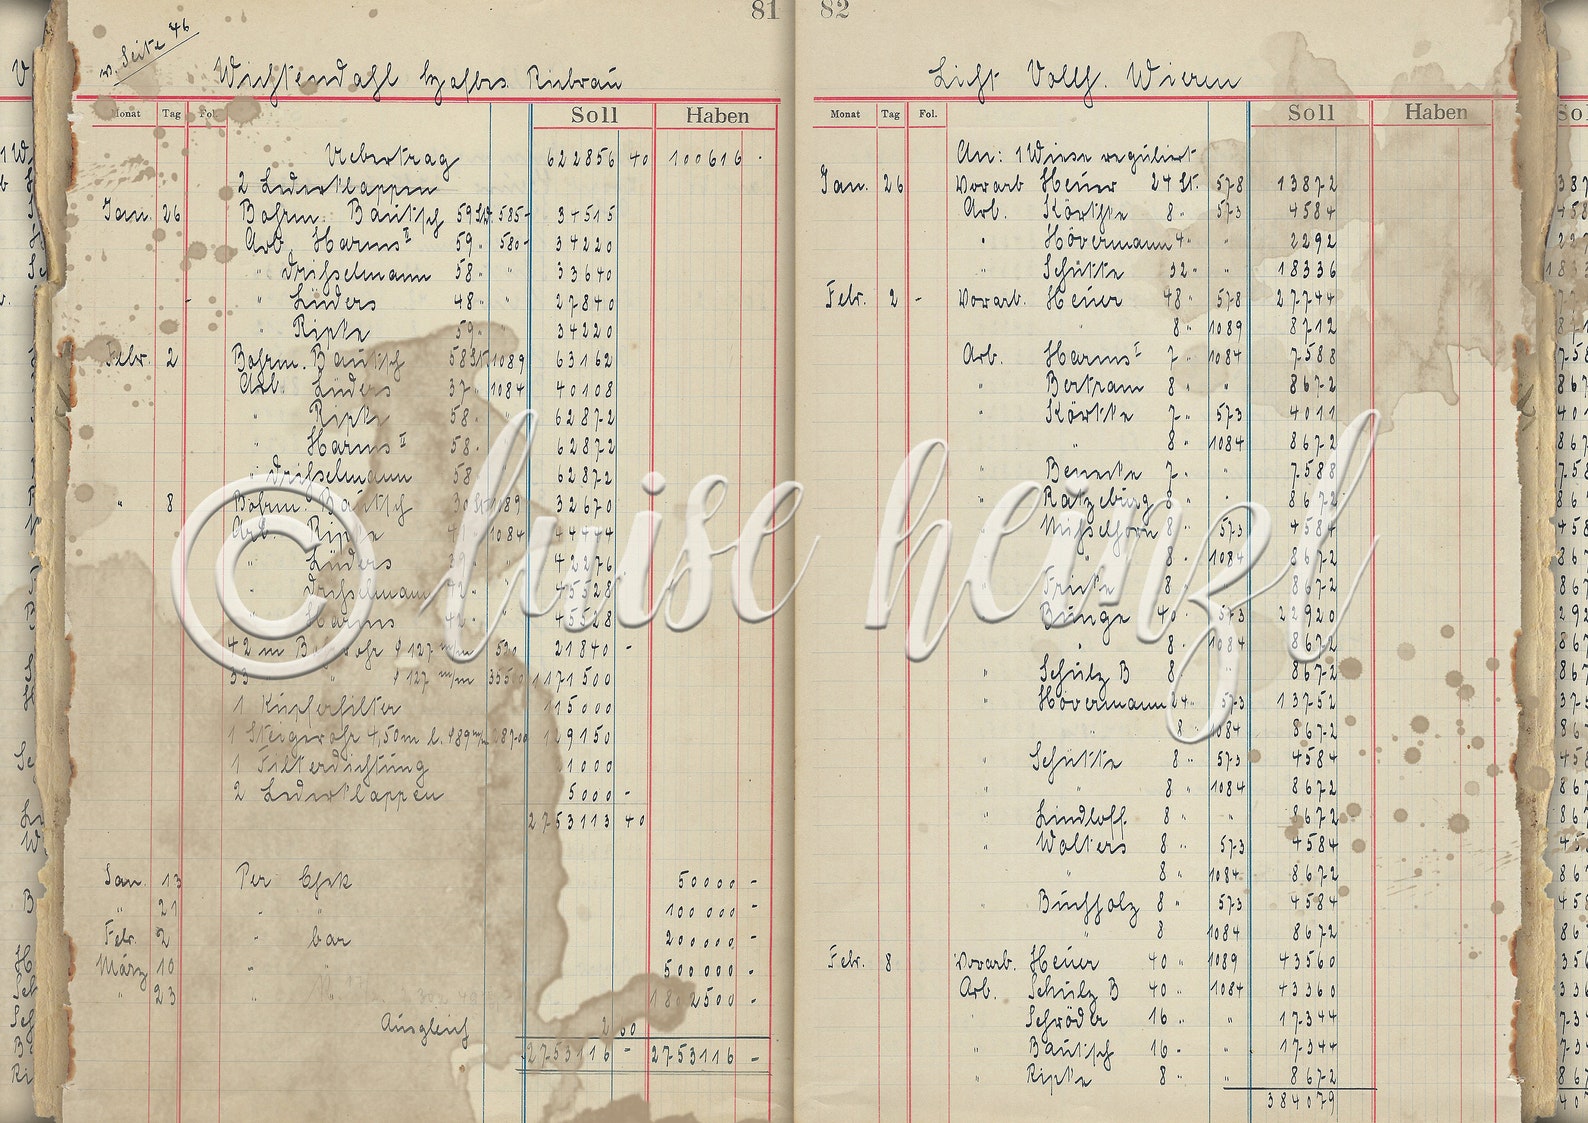 81
v. Seite 46
Wichtendahl
Monat Tag Fol. Soll Haben
Uebertrag 622856 40 100616 -
2 Lederklappen
Jan. 26 Bohrm. Bautsch 59 St. 585- 34515
Arb. Harms II 59 " 580- 34220
" Drihselmann 58 " " 33640
" Lüders 48 " " 27840
" Ripke 59 " 34220
Febr. 2 Bohrm. Bautsch 58 St. 1089 63162
Arb. Lüders 37 " 1084 40108
" Ripke 58 " " 62872
" Harms II 58 " 62872
" Drihselmann 58 " 62872
" 8 Bohrm. Bautsch 30 St. 1089 32670
Arb. Ripke 41 " 1084 44444
" Lüders 39 " " 42276
" Drihselmann 42 " " 45528
" Harms 42 " " 45528
42 m Bohrrohr 127 m/m 520 21840 -
33 " 127 m/m 3550 1171500
1 Kupferfilter 115000
1 Steigerohr 4,50 m l. 89 m/m 28700 129150
1 Filterdichtung 1000
2 Lederklappen 5000 -
2753113 40
Jan. 13 Per Chek 50000 -
" 21 " " 100000 -
Febr. 2 " bar 200000 -
März 10 " " 500000 -
" 23 " " 1802500 -
Ausgleich 2 60
2753116 - 2753116 -
82
Licht Vollh. Wieren
Monat Tag Fol. Soll Haben
An: 1 Wiese reguliert
Jan. 26 Vorarb Heuer 24 St. 578 13872
Arb. Körtke 8 " 573 4584
" Hövermann 4 " " 2292
" Schütte 32 " " 18336
Febr. 2 - Vorarb. Heuer 48 " 578 27744
" 8 " 1089 8712
Arb. Harms I 7 " 1084 7588
" Bertram 8 " " 8672
" Körtke 7 " 573 4011
" 8 " 1084 8672
" Benecke 7 " " 7588
" Ratzeburg 8 " " 8672
" Mihselhorn 8 " 573 4584
" 8 " 1084 8672
" Fricke 8 " " 8672
" Bunge 40 " 573 22920
" 8 " 1084 8672
" Schulz B 8 " " 8672
" Hövermann 24 " 573 13752
" 8 " 1084 8672
" Schütte 8 " 573 4584
" " 8 " 1084 8672
" Lindloff 8 " " 8672
" Wolters 8 " 573 4584
" 8 " 1084 8672
" Buchholz 8 " 573 4584
" 8 1084 8672
Febr. 8 Vorarb. Heuer 40 " 1089 43560
Arb. Schulz B 40 " 1084 43360
" Schröder 16 " " 17344
" Bautsch 16 " " 17344
" Ripke 8 " " 8672
384079
© luise heinzl